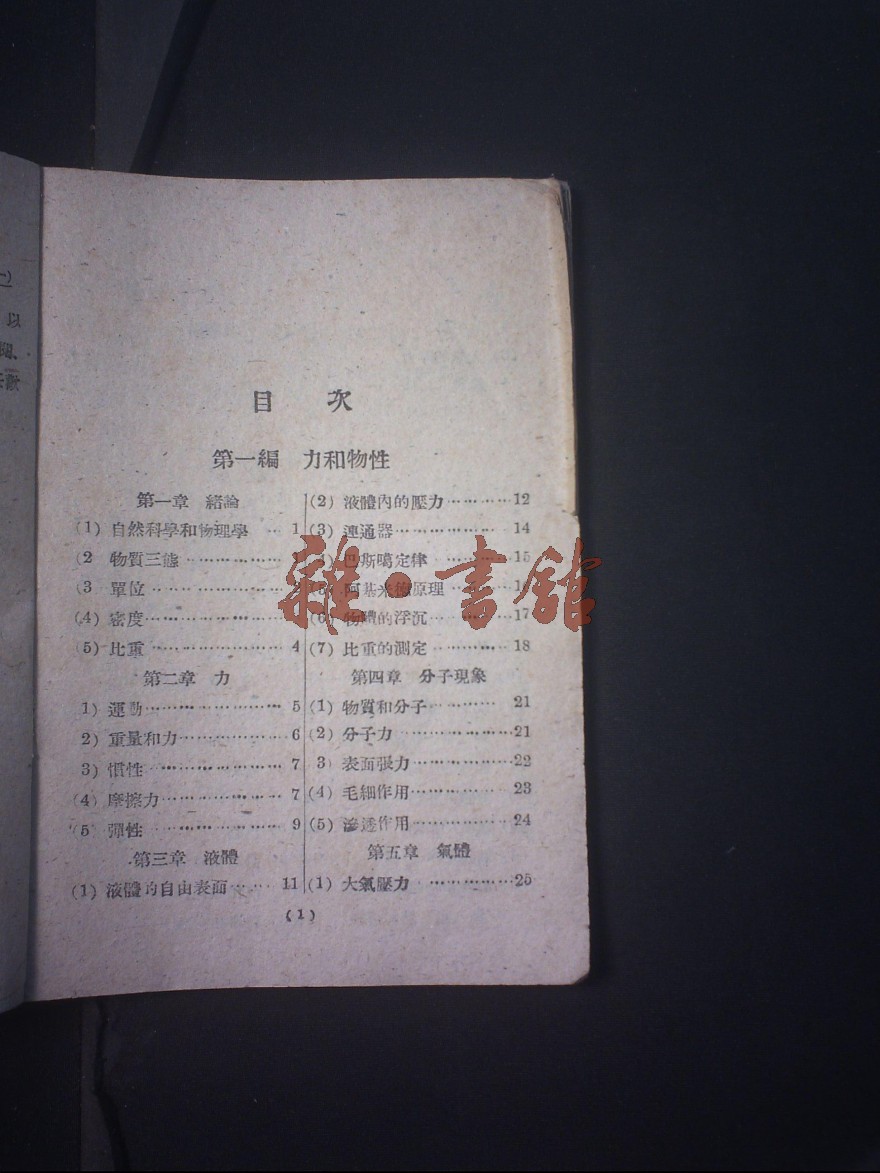 目 次
第一編 力和物性
第一章 緒論
(1) 自然科學和物理學 … 1
(2 物質三態 ………………
(3 單位 ………………
(4) 密度 ………………
(5) 比重 ……………… 4
第二章 力
1) 運動 ……………… 5
2) 重量和力 ……………… 6
3) 慣性 ……………… 7
(4) 摩擦力 ……………… 7
(5 彈性 ……………… 9
第三章 液體
(1) 液體的自由表面 …… 11
(2) 液體內的壓力 ………… 12
(3) 連通器 ……………… 14
巴斯噶定律 ………… 15
(5) 阿基米德原理 ……… 16
(6) 物體的浮沉 ………… 17
(7) 比重的測定 ………… 18
第四章 分子現象
(1) 物質和分子 ………… 21
(2) 分子力 ……………… 21
3) 表面張力 ……………… 22
(4) 毛細作用 ……………… 23
(5) 滲透作用 ……………… 24
第五章 氣體
(1) 大氣壓力 …………… 25
(1)
雜·書館
以